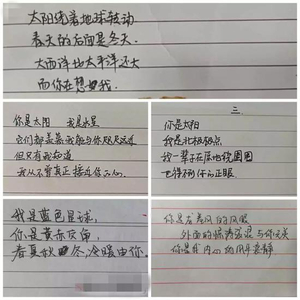 太阳绕着地球转动
春天的后面是冬天
大西洋比太平洋还大
而你在想我
你是太阳 我是水星
它们都羡慕我能与你咫尺
但只有我知道
我从不曾真正接近你的心
三
你是太阳
我是北极的点
我一辈子在原地绕圈圈
也得不到你的正眼
我是蓝色星球,
你是黄赤交角,
春夏秋冬,冷暖由你.
你是龙卷风的风眼
外面的惊涛骇浪与你无关
你是我内心的风平浪静